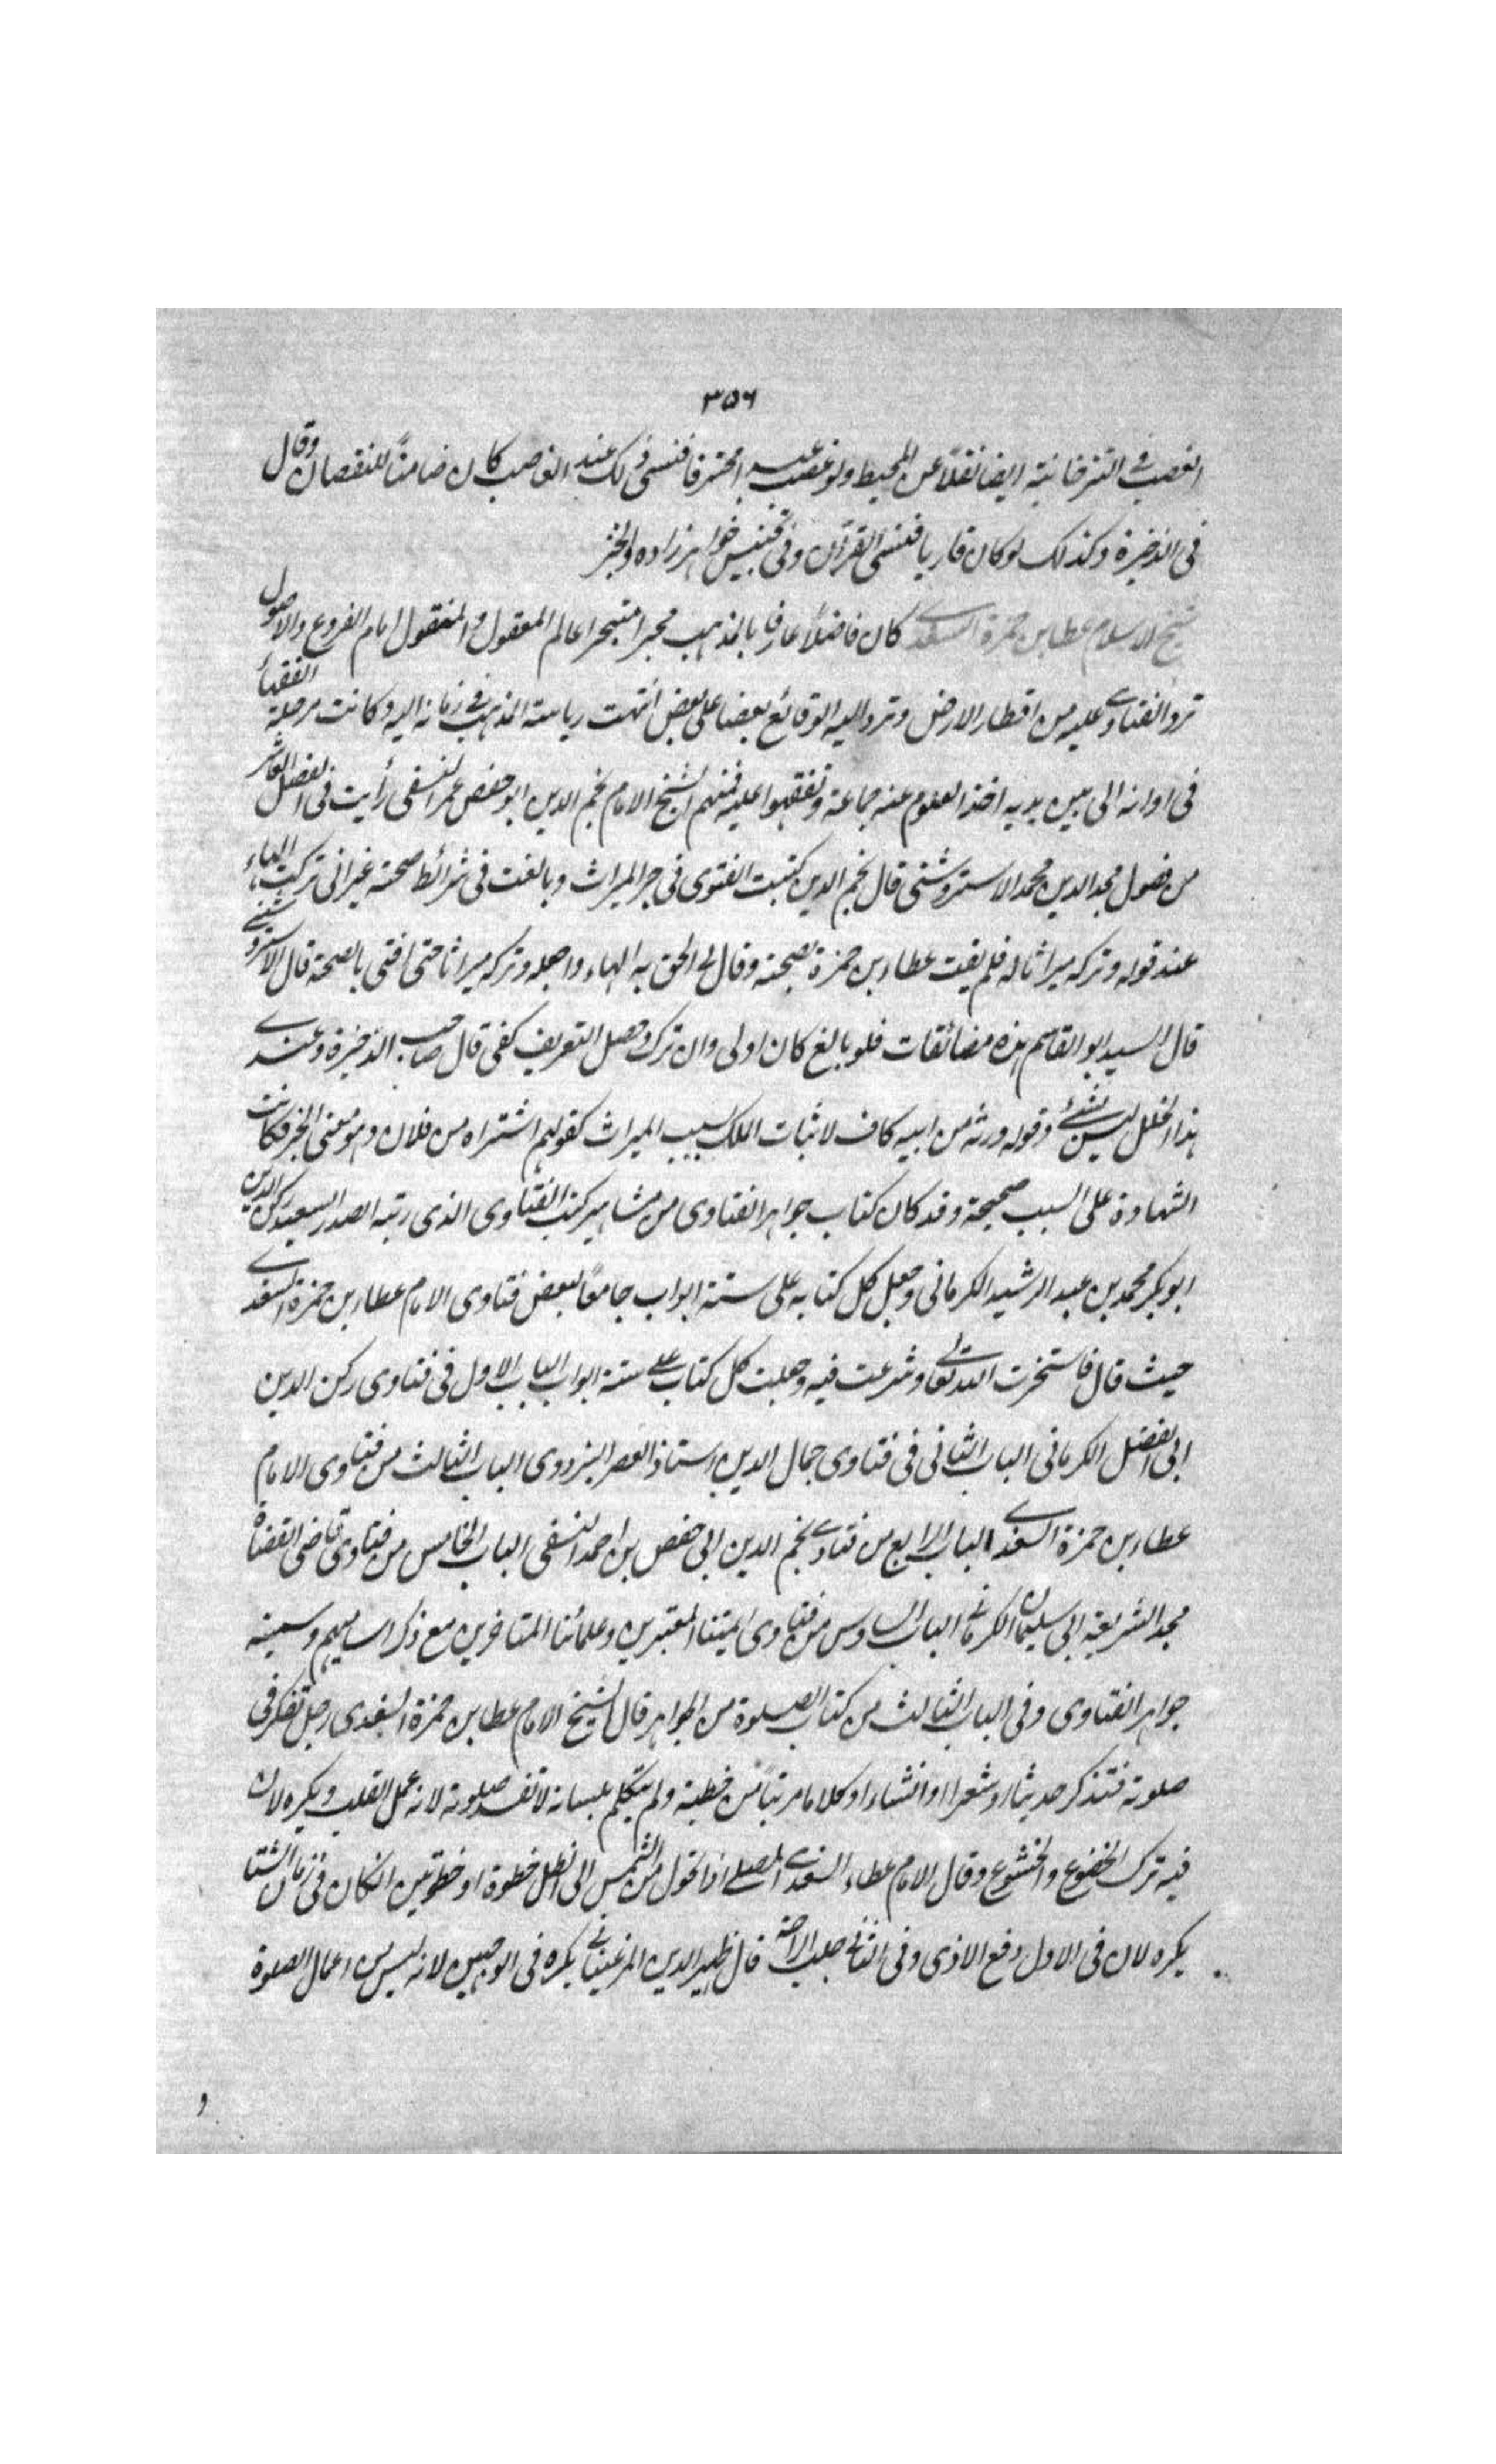 ٣٥٦
الغصب فى التترخانية ايضا نقلاً عن المحيط ولو غصب عبدا محترفا فنسى ذلك عند الغاصب كان ضامناً للنقصان وقال
فى الذخيرة وكذلك لو كان قاريا فنسى القرآن وفى تجنيس خواهرزاده والخبز
شيخ الاسلام عطا بن حمزة السغدى كان فاضلاً عارفا بالمذهب متبحرا عالم المعقول والمنقول امام الفروع والاصول
ترد الفتاوى عليه من اقطار الارض وترد اليه الوقائع بعضا على بعض انتهت رياسة المذهب فى زمانه اليه وكانت مرحلة الفقهاء
فى اوانه الى بين يديه اخذ العلوم عنه جماعة وتفقهوا عليه فمنهم الشيخ الامام نجم الدين ابو حفص عمر النسفى رأيت فى الفصل العاشر
من فصول مجد الدين محمد الاستروشنى قال نجم الدين كتبت الفتوى فى جر الميراث وبالغت فى شرائط صحته غير انى تركت الهاء
عند قوله وتركه ميراثا له فلم يفت عطاء بن حمزة بصحته وقال لى الحق به الهاء واجعله وتركه ميراثا حتى افتى بالصحة قال الاستروشنى
قال السيد ابو القاسم هذه مضائقات فلو بالغ كان اولى وان ترك وحصل التعريف كفى قال صاحب الذخيرة وعندى
هذا الخلل ليس بشئ وقوله ورثه من ابيه كاف لاثبات الملك بسبب الميراث كقولهم اشتراه من فلان وهو معنى الجر فكانت
الشهادة على السبب صحيحة وقد كان كتاب جواهر الفتاوى من مشاهير كتب الفتاوى الذى رتبه الصدر السعيد ركن الدين
ابو بكر محمد بن عبد الرشيد الكرمانى وجعل كل كتابه على ستة ابواب جامعاً لبعض فتاوى الامام عطاء بن حمزة السغدى
حيث قال فاستخرت الله تعالى وشرعت فيه وجعلت كل كتاب على ستة ابواب الباب الاول فى فتاوى ركن الدين
ابى الفضل الكرمانى الباب الثانى فى فتاوى جمال الدين استاذ العصر البزدوى الباب الثالث من فتاوى الامام
عطاء بن حمزة السغدى الباب الرابع من فتاوى نجم الدين ابى حفص بن احمد النسفى الباب الخامس من فتاوى قاضى القضاة
مجد الشريعة ابى سليمان الكرمانى الباب السادس من فتاوى ائمتنا المعتبرين وعلمائنا المتاخرين مع ذكر اساميهم وسميته
جواهر الفتاوى وفى الباب الثالث من كتاب الصلوة من الجواهر قال الشيخ الامام عطا بن حمزة السغدى رجل تفكر فى
صلوته فتذكر حديثا او شعرا او انشاء او كلاما مرتباً من خطبة ولم يتكلم بلسانه لا تفسد صلوته لانه عمل القلب ويكره لان
فيه ترك الخضوع والخشوع وقال الامام عطاء السغدى المصلى اذا تحول من الشمس الى الظل خطوة او خطوتين ان كان فى زمان الشتا
يكره لان فى الاول دفع الاذى وفى الثانى جلب الراحة قال ظهير الدين المرغينانى يكره فى الوجهين لانه ليس من اعمال الصلوة
و